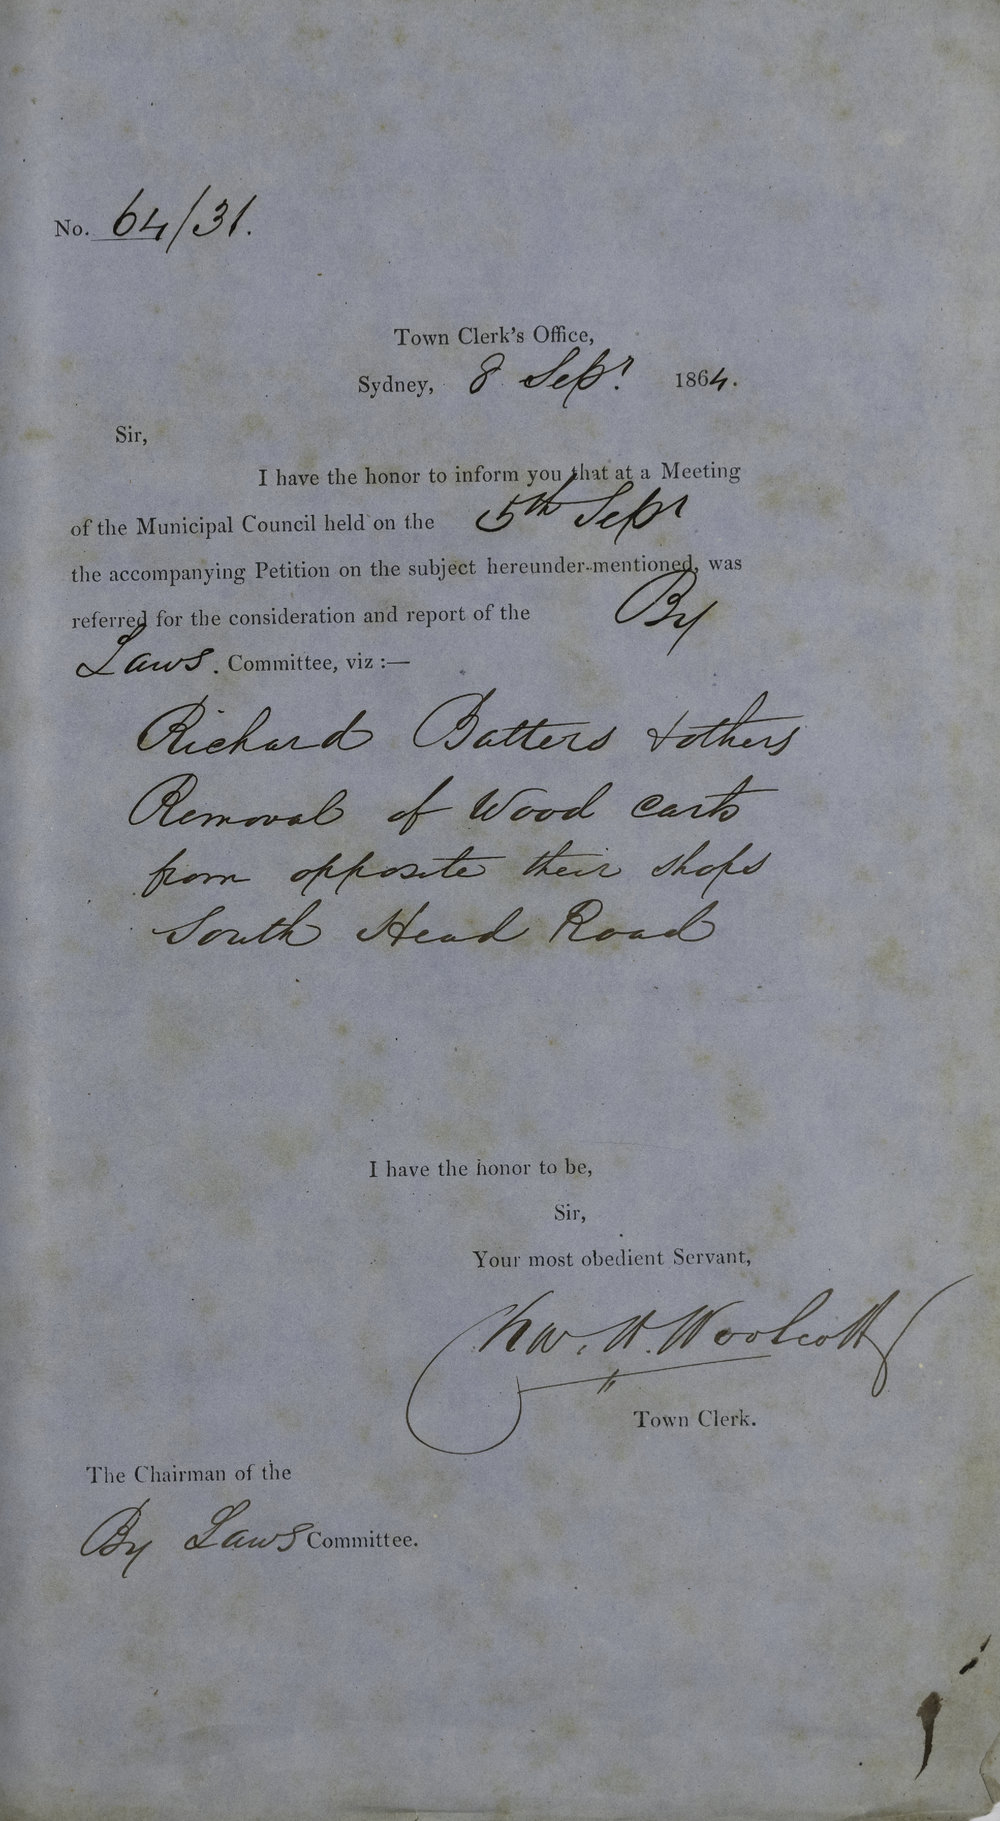 No. 64/31.
Town Clerk's Office,
Sydney, 8 Sepr. 1864.
Sir,
I have the honor to inform you that at a Meeting
of the Municipal Council held on the 5th Sepr
the accompanying Petition on the subject hereunder-mentioned, was
referred for the consideration and report of the By
Laws. Committee, viz :—
Richard Batters & others
Removal of Wood carts
from opposite their shops
South Head Road
I have the honor to be,
Sir,
Your most obedient Servant,
Woolcott
Town Clerk.
The Chairman of the
By Laws Committee.